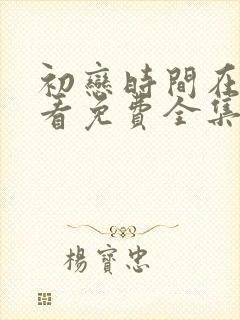 初戀時間在
看免費全集
楊寶忠